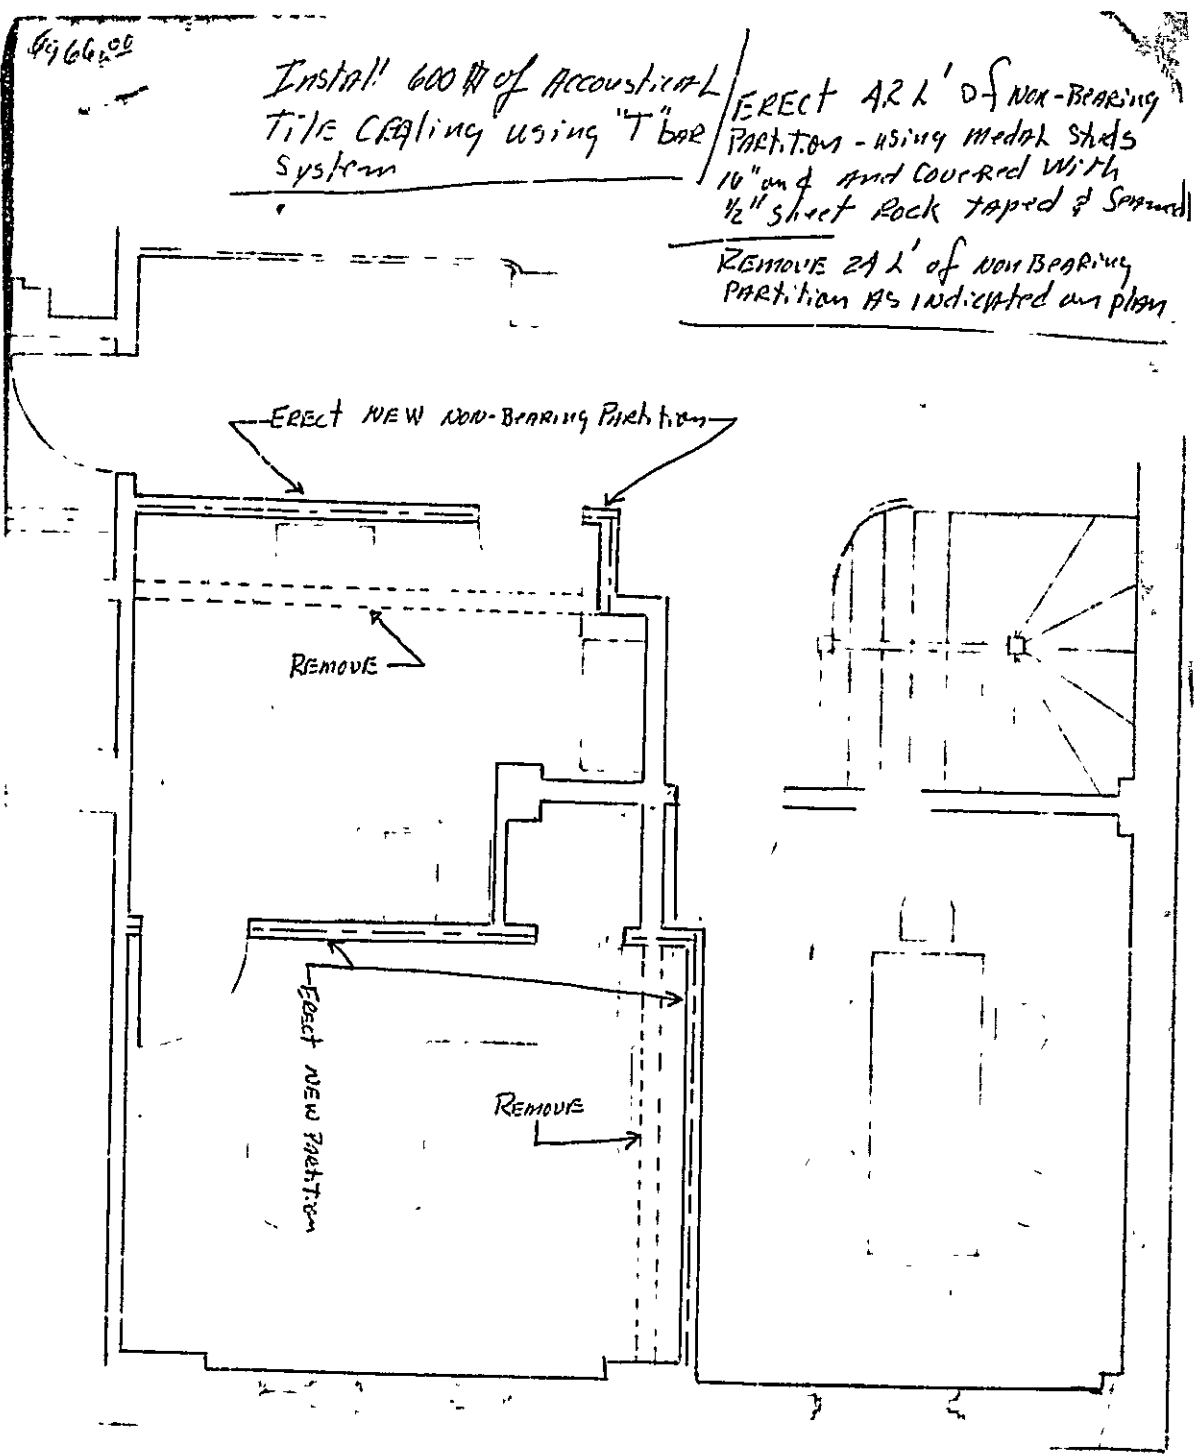 Install 600 # of Accoustical
Tile Ceqling using "T" bar
System
Erect 42 L' of Non-Bearing
Partition - using Medal Studs
16" on ¢ And Covered With
1/2" sheet Rock taped &
Remove 24 L' of Non Bearing
Partition As indicated on plan
Erect New Non-Bearing Partition
Remove
Erect New Partition
Remove